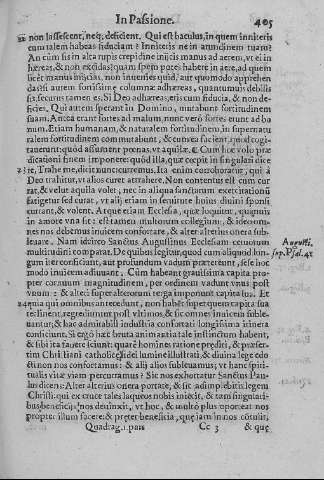 In Passione. 405
22 non lassescent, neq; deficient. Qui est baculus, in quem inniteris
cum talem habeas fiduciam? Inniteris ne in arundinem tuam?
An cùm sis in alta rupis crepidine inijcis manus ad aerem, vt ei in
hæreas, & non excidas? quam spem potes habere in aere, ad quem
licèt manus inijcias, non inuenies quid, aut quomodo apprehen
das? si autem fortissimæ columnæ adhæreas, quantumuis debilis
sis securus tamen es. Si Deo adhæreas, etsi cum fiducia, & non de-
ficies. Qui autem sperant in Domino, mutabunt fortitudinem
suam. Antea erant fortes ad malum, nunc verò fortes erunt ad bo
num. Etiam humanam, & naturalem fortitudinem, in supernatu
ralem fortitudinem commutabunt, & eo
trauerunt; quòd assument pennas, vt aquilæ. Cum hoc volo præ
dicationi finem imponere: quòd illa, quæ cœpit in singulari dice
23 re, Trahe me, dixit nunc curremus. Ita enim corroboratur, qui à
Deo trahitur, vt alios curet attrahere. Non contentus est cum cur
rat, & velut aquila volet, nec in aliqua sanctarum exercitationū
fatigetur sed curat, vt alij etiam in seruitute huius diuini sponsi
currant, & volent. Atque etiam Ecclesia, quæ loquitur, quamuis
in amore vna sit: est tamen multorum collegium, & ideo om-
nes nos debemus inuicem confortare, & alter alterius onera sub-
leuare. Nam idcirco Sanctus Augustinus Ecclesiam ceruorum
multitudini comparat. De quibus legitur, quod cum aliquod lon-
gum iter conficiunt, aut profundum vadum prætereunt, sese hoc
modo inuicem adiuuant. Cùm habeant grauissima capita pro-
pter cornuum magnitudinem, per ordinem vadunt vnus post
vnum: & alteri super alterorum terga imponunt capita sua. Et
24 quia qui omnibus antecedunt, non habēt super quem capita sua
teneant, regrediuntur post vltimos, & sic omnes inuicem suble-
uantur, & hac admirabili industria confortati longissima itinera
conficiunt. Si ergò hæc bruta animantia tale instinctum habent,
& sibi ita fauere sciunt: quarè homines ratione prediti, & præser-
tim Christiani catholicę fidei lumine illustrati, & diuina lege edo
cti non nos confortamus: & alij alios subleuamus; vt hanc spiri-
tualis vitæ viam percurramus? Sic nos exhortatur Sanctus Pau-
lus dicens: Alter alterius onera portate, & sic adimplebitis legem
Christi. qui ex cruce tales laqueos nobis iniecit, & tam singulari-
bus beneficijs nos deuinxit, vt hoc, & multò plus oporteat nos
propter illum facere: & præter beneficia, quę iam in nos cōtulit,
Augusti.
sup. Psal. 41
Quadrag. 1. pars Cc 3 & quę